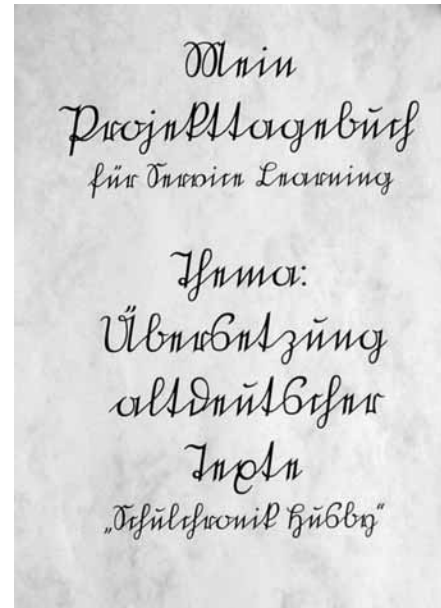 Mein
Projekttagebuch
für Service Learning
Thema:
Übersetzung
altdeutscher
Texte
„Schulchronik Husby“